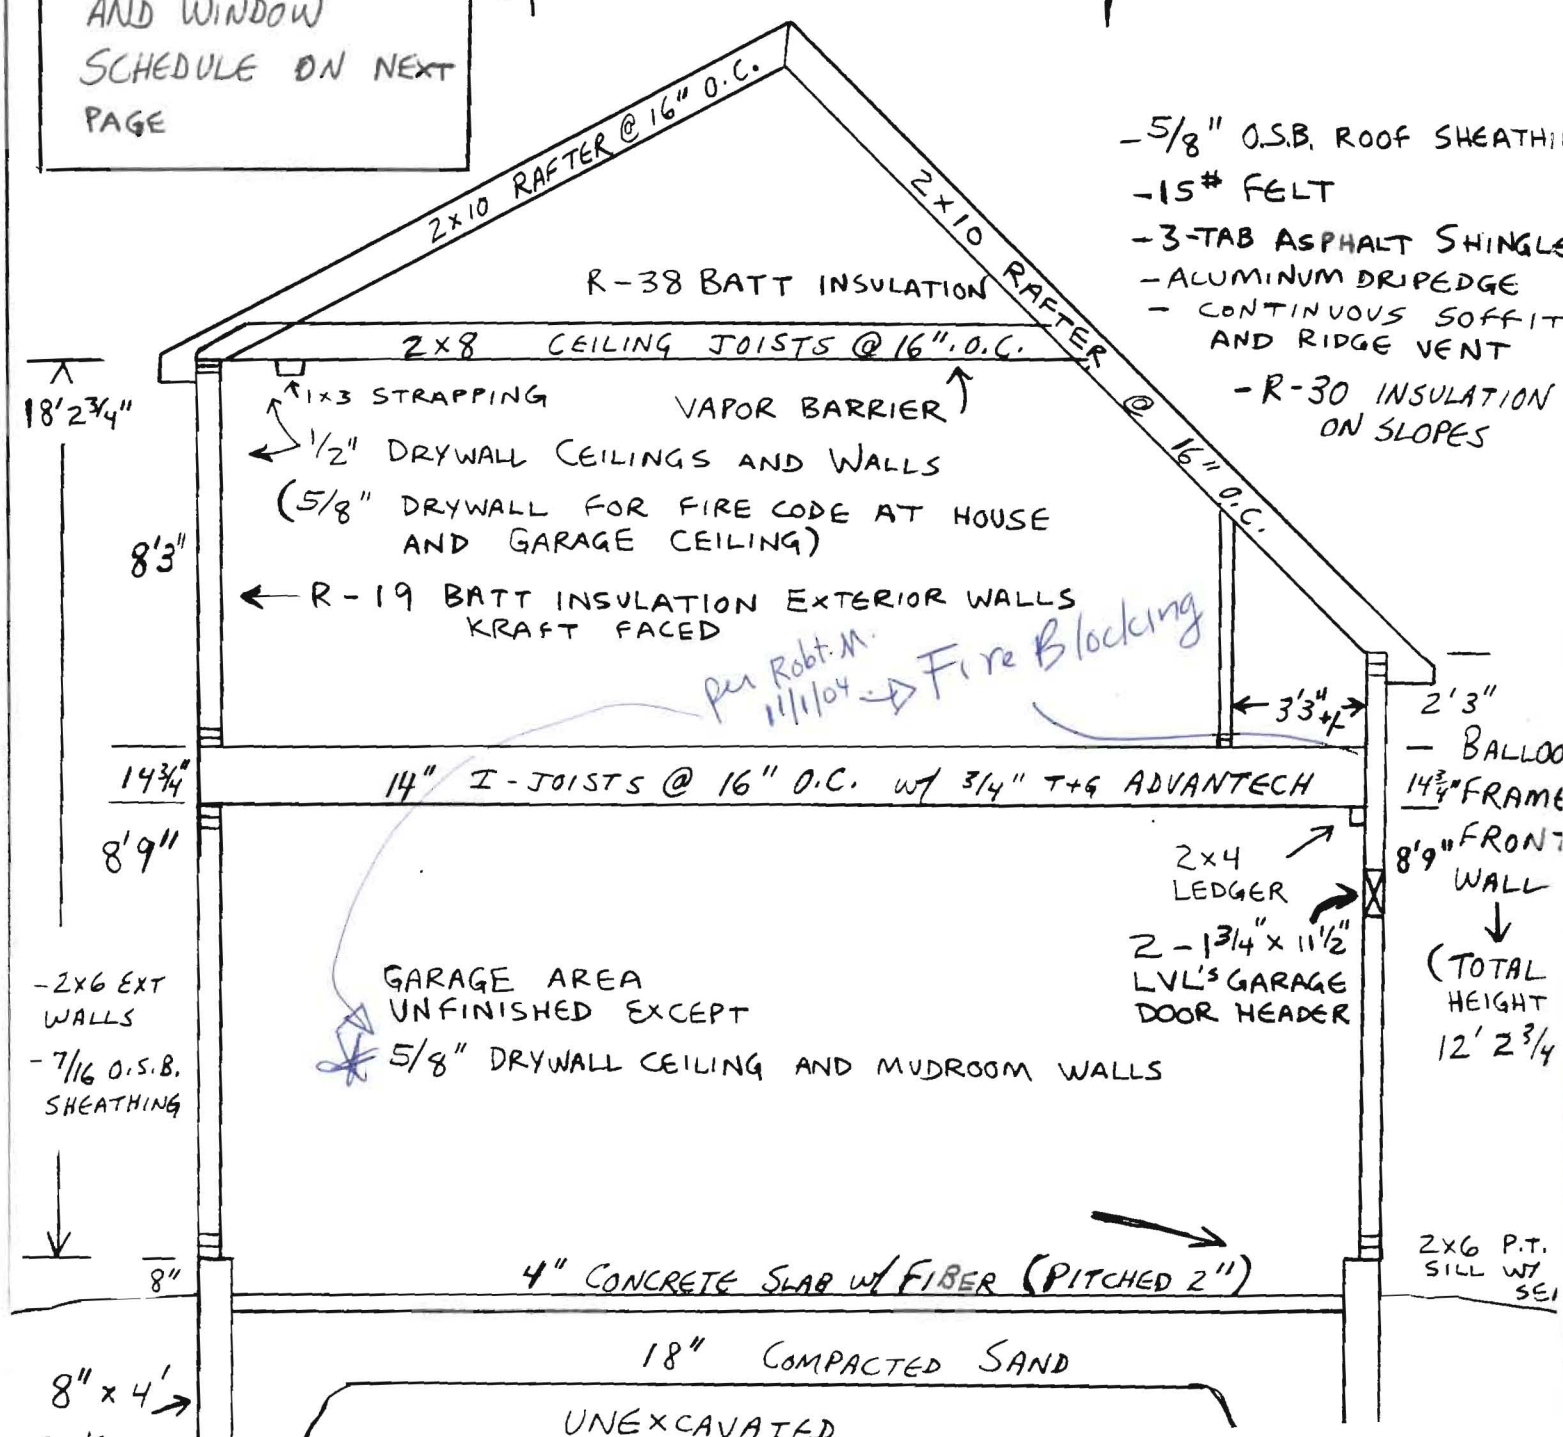 AND WINDOW
SCHEDULE ON NEXT
PAGE
2x10 RAFTER @ 16" O.C.
2x10 RAFTER @ 16" O.C.
-5/8" O.S.B. ROOF SHEATHI
-15# FELT
-3-TAB ASPHALT SHINGLE
-ALUMINUM DRIPEDGE
- CONTINUOUS SOFFIT
AND RIDGE VENT
-R-30 INSULATION
ON SLOPES
R-38 BATT INSULATION
2x8 CEILING JOISTS @ 16". O.C.
1x3 STRAPPING
VAPOR BARRIER
18'2 3/4"
1/2" DRYWALL CEILINGS AND WALLS
(5/8" DRYWALL FOR FIRE CODE AT HOUSE
AND GARAGE CEILING)
8'3"
R-19 BATT INSULATION EXTERIOR WALLS
KRAFT FACED
per Robt. M.
11/1/04 → Fire Blocking
3'3" +/-
2'3"
- BALLOO
FRAME
FRONT
WALL
(TOTAL
HEIGHT
12' 2 3/4
14 3/4"
14" I-JOISTS @ 16" O.C. w/ 3/4" T+G ADVANTECH
14 3/4"
8'9"
8'9"
2x4
LEDGER
2-1 3/4" x 11 1/2"
LVL'S GARAGE
DOOR HEADER
-2x6 EXT
WALLS
-7/16 O.S.B.
SHEATHING
GARAGE AREA
UNFINISHED EXCEPT
5/8" DRYWALL CEILING AND MUDROOM WALLS
8"
4" CONCRETE SLAB w/ FIBER (PITCHED 2")
2x6 P.T.
SILL W/
18" COMPACTED SAND
8" x 4'
UNEXCAVATED